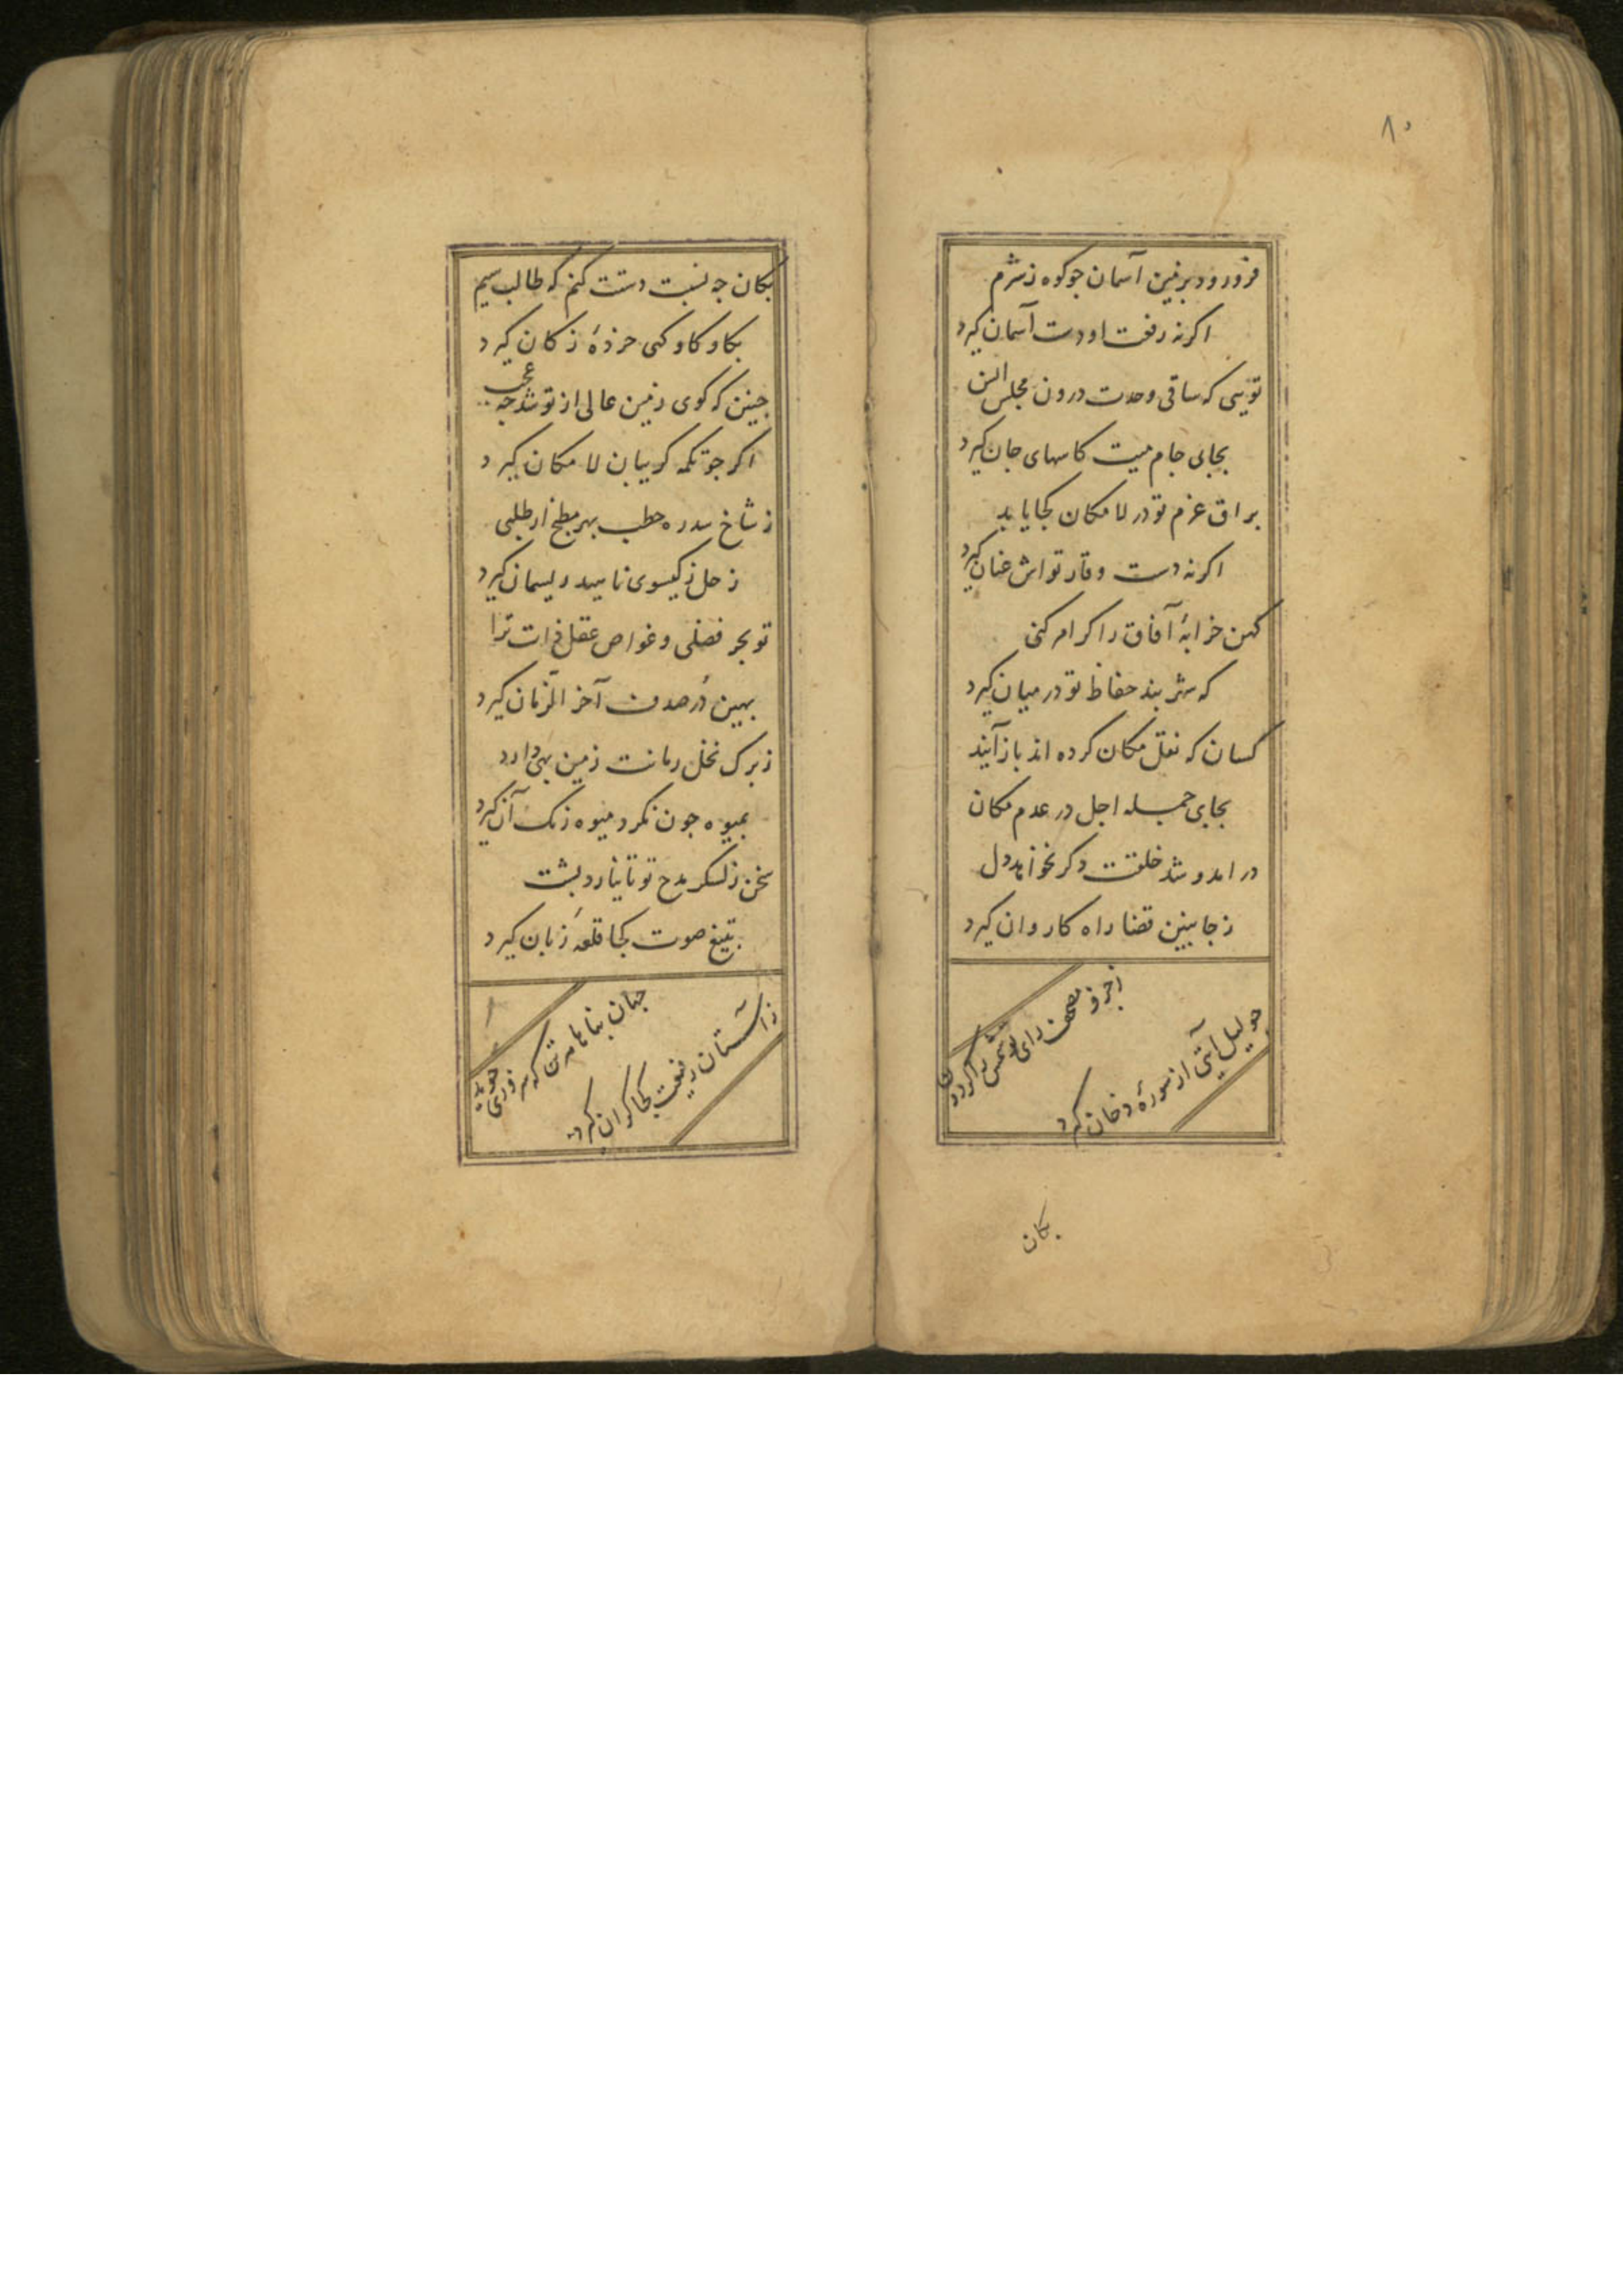 ۸۰
فرو رود بزمین آسمان جو کوه ز شرم
اکر نه رفعت او دست آسمان کیرد
تویی که ساقی وحدت درون مجلس انس
بجای جام میت کاسهای جان کیرد
براق عزم تو در لامکان کجا یابد
اکر نه دست وقار تواش عنان کیرد
کهن خرابهٔ آفاق را کرام کنی
که شهر بند حفاظ تو در میان کیرد
کسان که نقل مکان کرده اند باز آیند
بجای جمله اجل در عدم مکان
در امد و شد خلقت دکر نخواهد دل
ز جا ببین قضا راه کاروان کیرد
ز حرف مصحف رای تو شمس
جو لیل آیتی از سورهٔ دخان کیرد
بکان
بکان جه نسبت دستت کنم که طالب سیم
بکاو کاو کمی خردهٔ ز کان کیرد
جنین که کوی زمین عالی از تو شد جه عجب
اکر جو تکمه کریبان لامکان کیرد
ز شاخ سدره حطب بهر مطبخ ار طلبی
زحل ز کیسوی ناهید ریسمان کیرد
تو بحر فضلی و غواص عقل ذات ترا
بهین دُر صدف آخر الزمان کیرد
ز برک نخل زمانت زمین بهی دارد
بمیوه جون نکرد میوه رنک آن کیرد
سخن ز لشکر مدح تو تا نیارد پشت
بتیغ صوت کجا قلعهٔ زبان کیرد
جهان بناها مه تن که سروری جوید
ز آستان رفیعت کجا کران کیرد